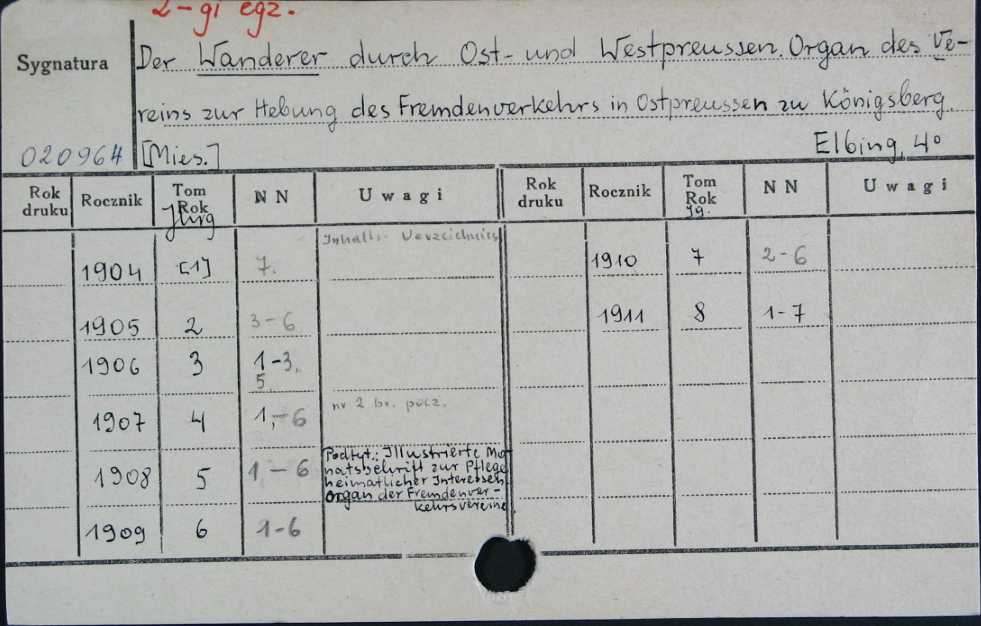 2-gi egz.
Sygnatura
Der Wanderer durch Ost- und Westpreussen. Organ des Ve-
reins zur Hebung des Fremdenverkehrs in Ostpreussen zu Königsberg.
020964 [Mies.] Elbing, 4°
Rok druku Rocznik Tom Rok Jhrg NN Uwagi Rok druku Rocznik Tom Rok Jg. NN Uwagi
Inhalts-Verzeichniss
1904 [1] 7. 1910 7 2-6
1905 2 3-6 1911 8 1-7
1906 3 1-3, 5.
1907 4 1,-6 nr 2 br. pocz.
1908 5 1-6
Podtyt.: Illustrierte Mo-
natsschrift zur Pflege
heimatlicher Interessen
Organ der Fremdenver-
kehrsvereine
1909 6 1-6